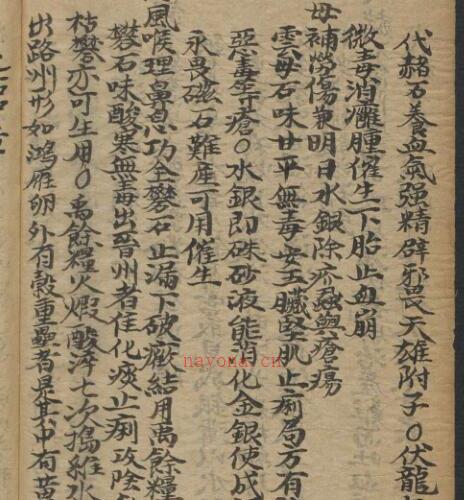 代赭石養血氣強精辟邪畏天雄附子〇伏龍
微毒消癰腫催生下胎止血崩
母補勞傷兼明目水銀除疥蝨與瘡瘍
雲母石味甘平無毒安五臟堅肌止痢局方有
惡毒等瘡〇水銀即硃砂液能消化金銀使成
永畏磁石難産可用催生
風喉理鼻息功全礬石止漏下破癥結用禹餘糧
礬石味酸寒無毒出晉州者佳化痰止痢攻陰
枯礬亦可生用〇禹餘糧火煆酸淬七次搗細水
出路州形如鴻雁卵外有殼重疊者是其中有黃
nayona.cn